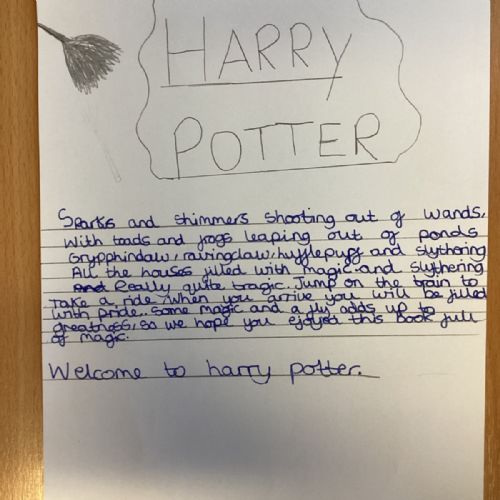 HARRY
POTTER
Sparks and shimmers shooting out of wands,
With toads and frogs leaping out of ponds
Grypphindaw, rairingclaw, hufflepuff, and slythering
All the houses filled with magic. and slythering
and Really quite tragic. Jump on the train to
take a ride when you arrive you will be filled
with pride. some magic and a fly adds up to
greatness, so we hope you ejoyed this book full
of magic.
Welcome to harry potter.